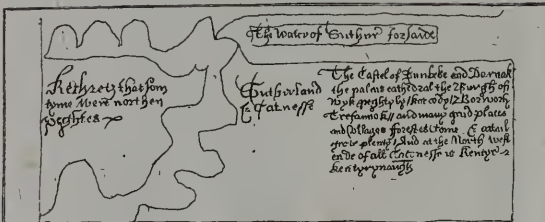 The water of Suthirr forsaide
Kethretz that som
tyme were northen
Pyghtes
Sutherland
& Catnesse
The Castel of Dunbebe and Dornak
the palais cathedral the Burgh of
Wyk
and many grid places
and villages forestes tome. & catail
grete plenty And at the North west
ende of all Catnesse is Kentyr &
Kentyrynough